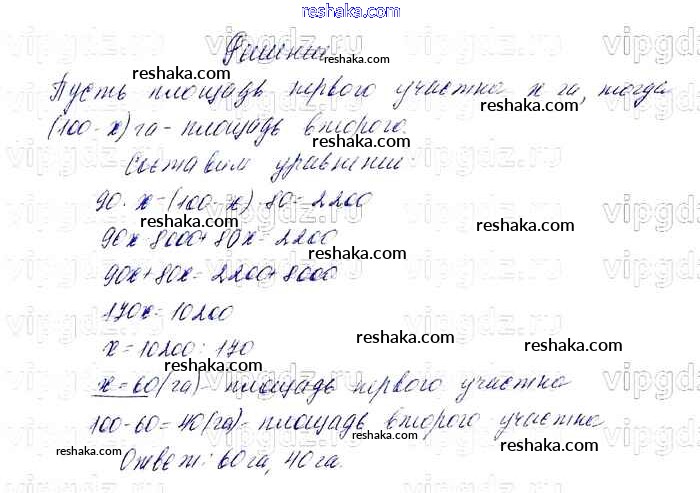 reshaka.com
Решение
reshaka.com
Пусть площадь первого участка x га, тогда
reshaka.com
reshaka.com
(100-x) га - площадь второго.
reshaka.com
Составим уравнение:
90·x-(100-x)·80=2200
reshaka.com
reshaka.com
90x-8000+80x=2200
reshaka.com
90x+80x=2200+8000
170x=10200
reshaka.com
reshaka.com
x=10200:170
reshaka.com
x=60(га)- площадь первого участка
reshaka.com
100-60=40(га)- площадь второго участка
reshaka.com
reshaka.com
Ответ: 60 га, 40 га.
vipgdz.ru